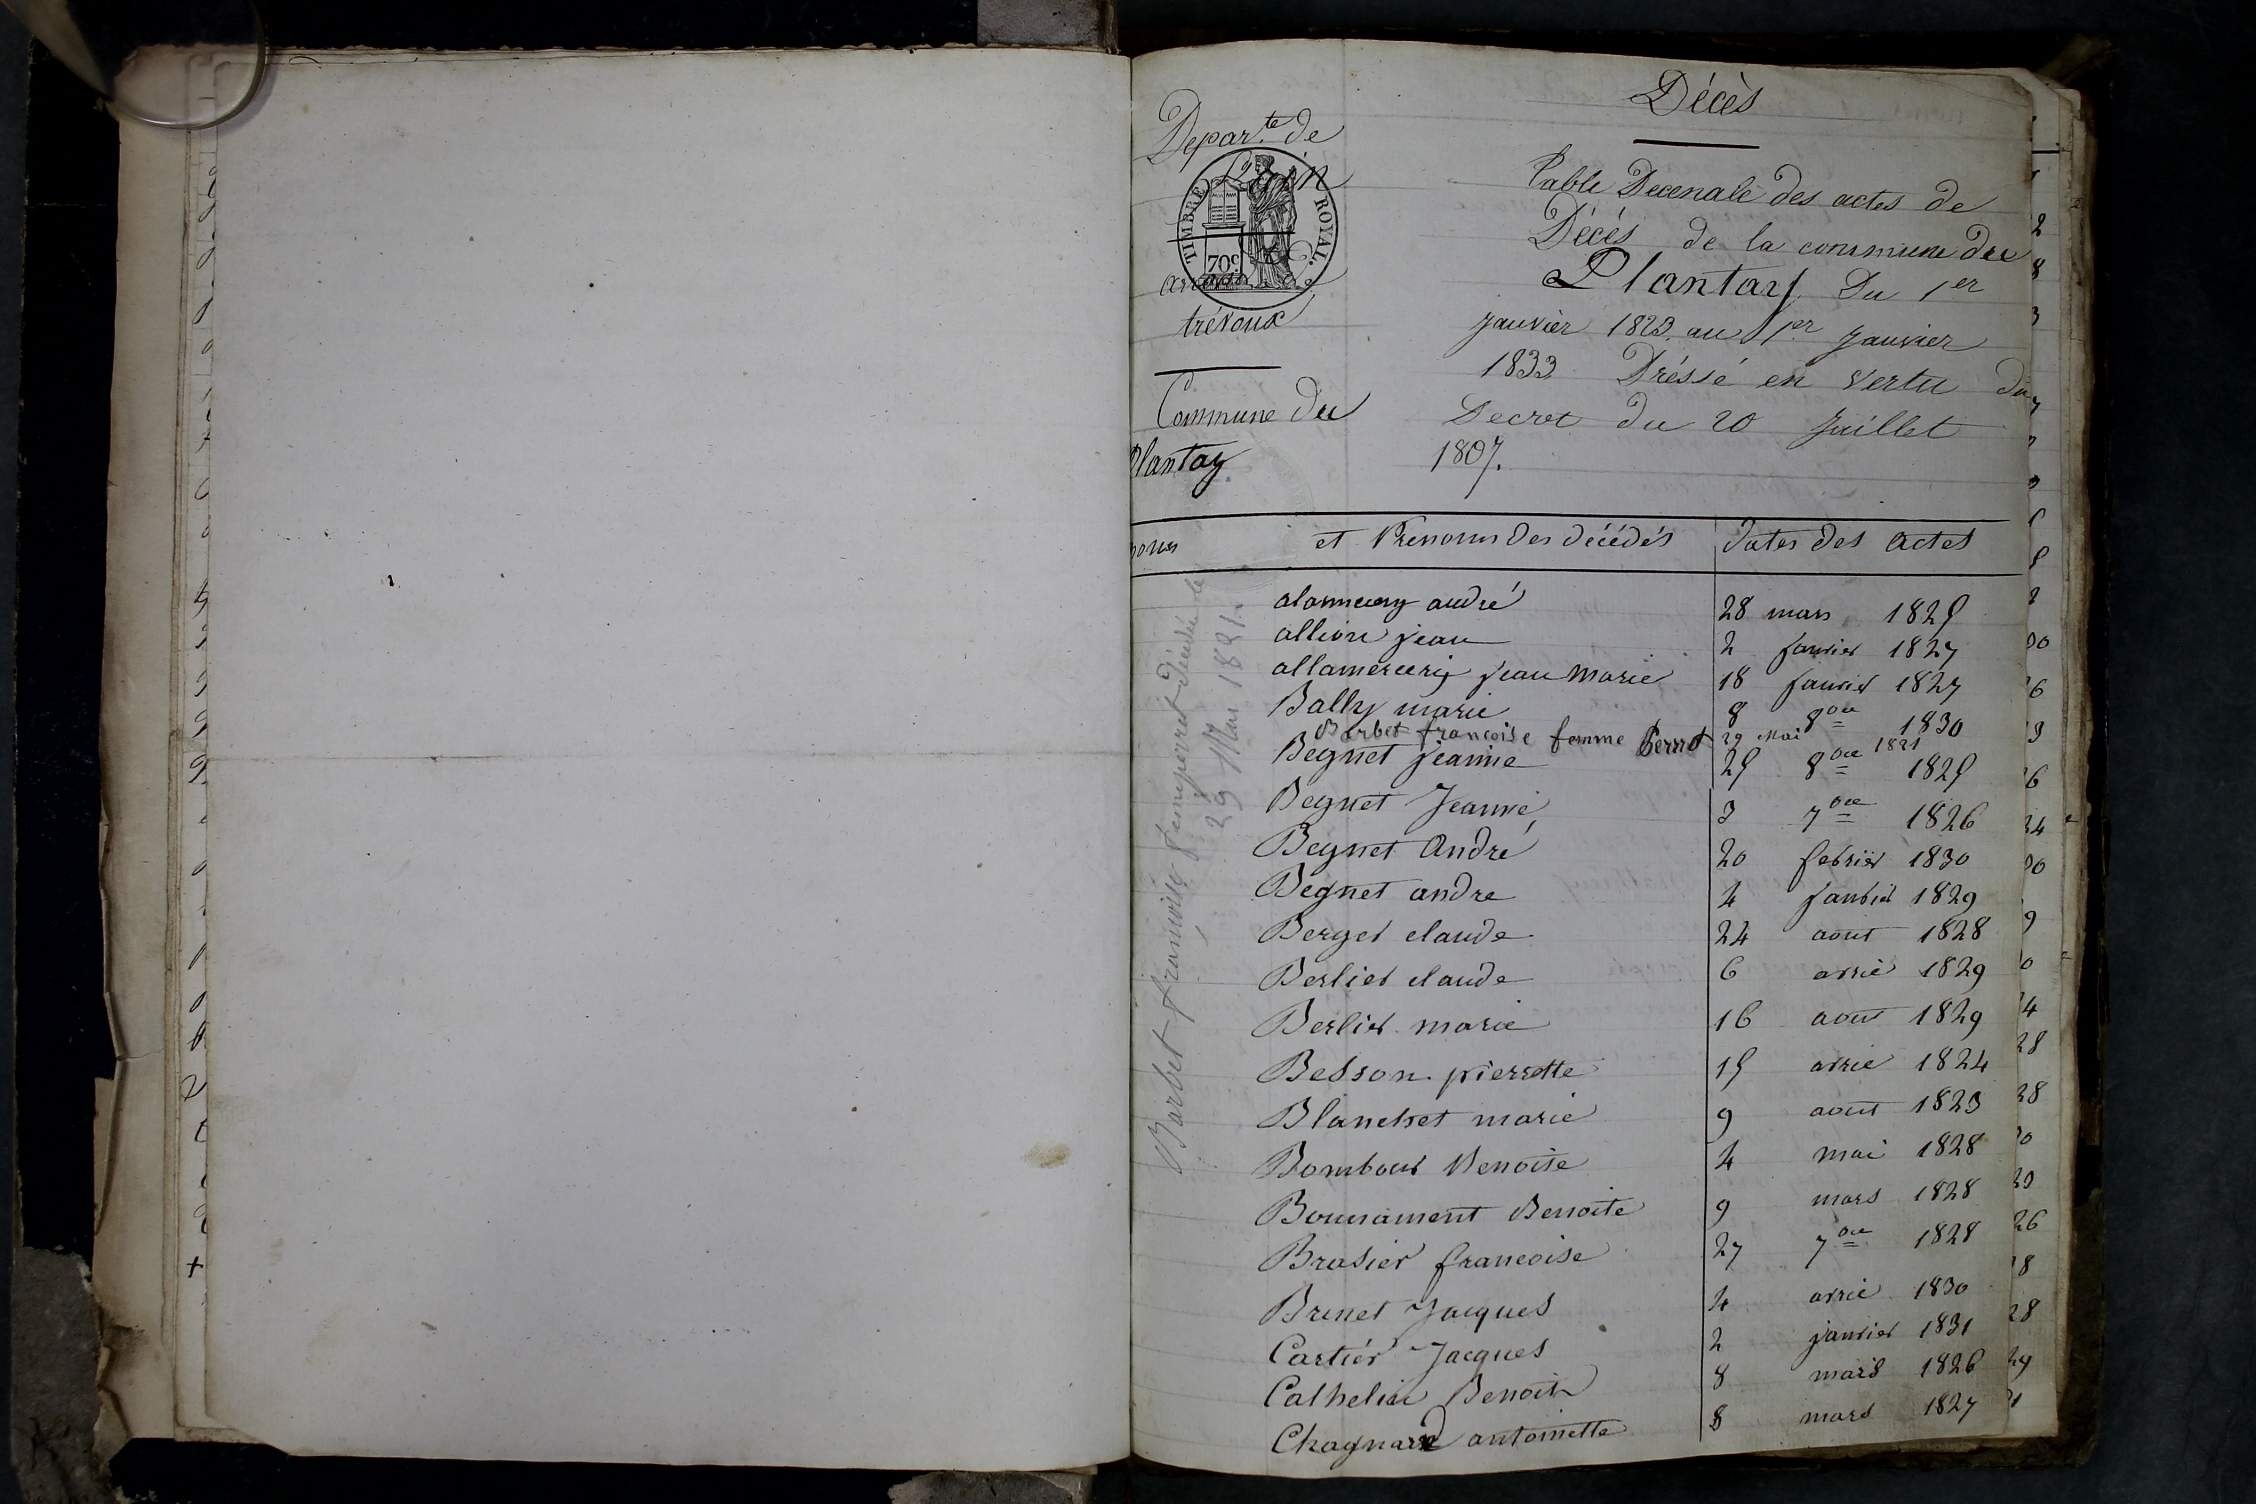 Décès
Depar.te de
l'ain
TIMBRE ROYAL.
70c
arrondi
trévoux
Commune du
Plantay
Table Decenale des actes de
Décés de la commune du
Plantay Du 1er
janvier 1823 au 1er janvier
1833 Dréssé en vertu du
Decret du 20 Juillet
1807.
noms et Prenoms des décédés Dates des actes
andré 28 mars 1825
allion jean 2 janvier 1827
jean Marie 18 janvier 1827
Bally marie 8 8bre 1830
Barbet francoise femme Perret 29 Mai 1821
Begnet jeanne 25 8bre 1825
Begnet Jeanne 3 7bre 1826
Begnet André 20 febrier 1830
Begnet andre 4 janvier 1829
Berger claude 24 aout 1828
Berlier claude 6 avril 1829
Berlier marie 16 aout 1829
Besson pierrette 15 avril 1824
Blanchet marie 9 aout 1823
Benoite 4 mai 1828
Bonnament Benoite 9 mars 1828
Brasier francoise 27 7bre 1828
Brunet Jacques 4 avril 1830
Cartier Jacques 2 janvier 1831
Cathelin Benoit 8 mars 1826
Chagnard antoinette 8 mars 1827
Barbet françoise décédée le
29 Mai 1821.